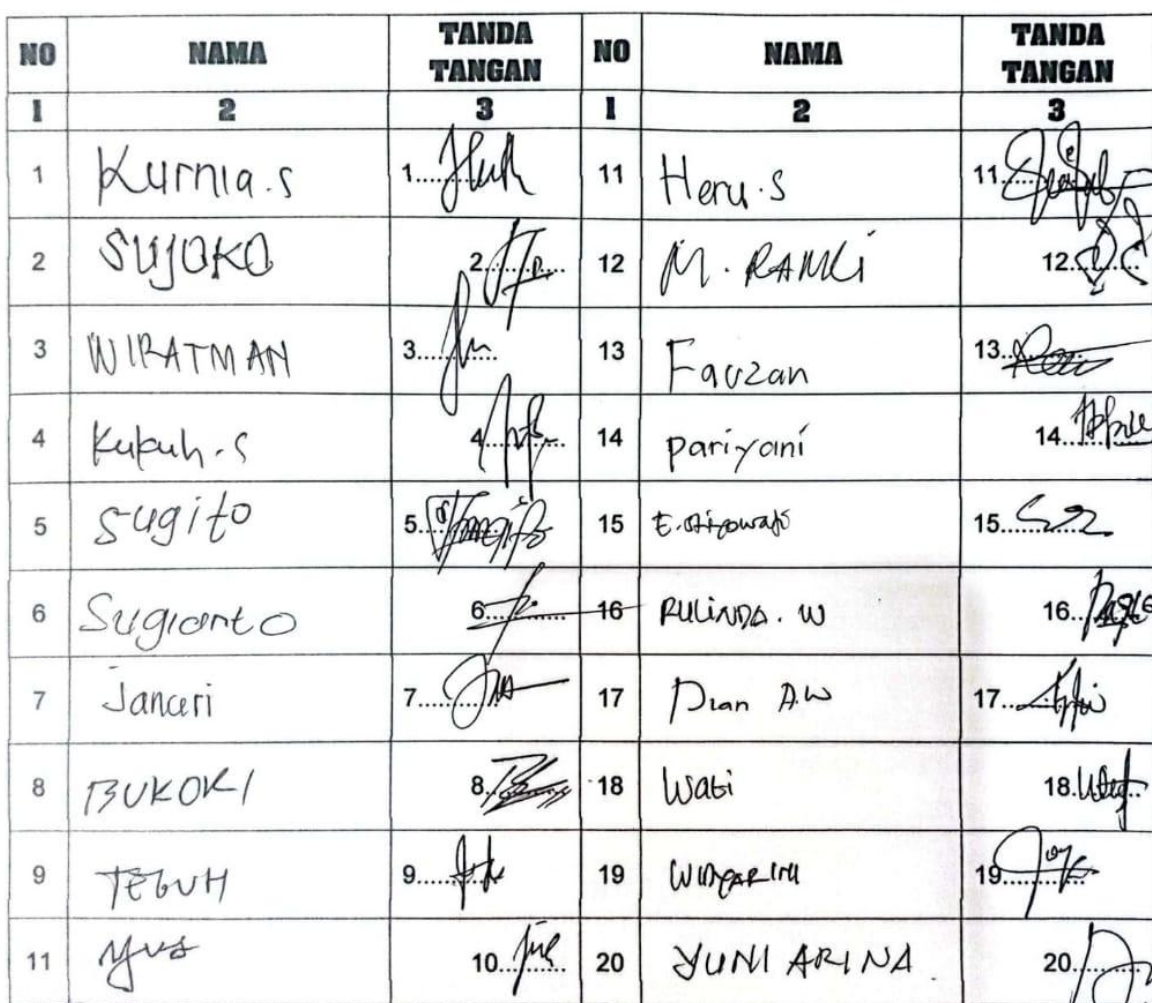 NO NAMA TANDA TANGAN NO NAMA TANDA TANGAN
1 2 3 1 2 3
1 Kurnia.s 1 11 Heru.s 11
2 SUJOKO 2 12 M. RAMLI 12
3 WIRATMAN 3 13 Fauzan 13
4 Kukuh.s 4 14 pariyani 14
5 sugito 5 15 15
6 Sugianto 6 16 RULINDA. W 16
7 Janari 7 17 Dian A.W 17
8 BUKORI 8 18 Wati 18
9 TEGUH 9 19 19
11 yus 10 20 YUNI ARINA 20